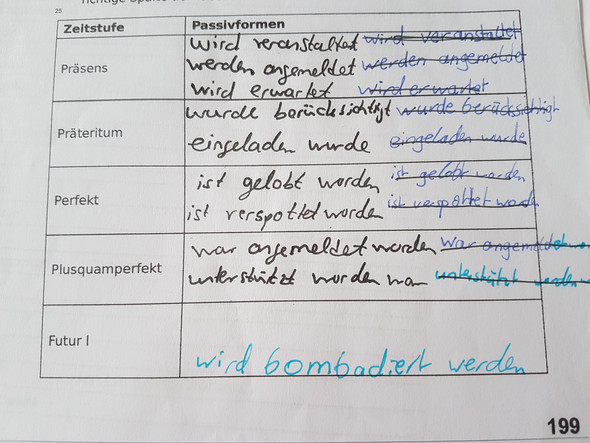 25
Zeitstufe Passivformen
Präsens
wird veranstaltet wird veranstaltet
werden angemeldet werden angemeldet
wird erwartet wird erwartet
Präteritum
wurde berücksichtigt wurde berücksichtigt
eingeladen wurde eingeladen wurde
Perfekt
ist gelobt worden ist gelobt worden
ist verspottet worden ist verspottet worden
Plusquamperfekt
war angemeldet worden war angemeldet
unterstützt worden war unterstützt worden
Futur I
wird bombadiert werden
199